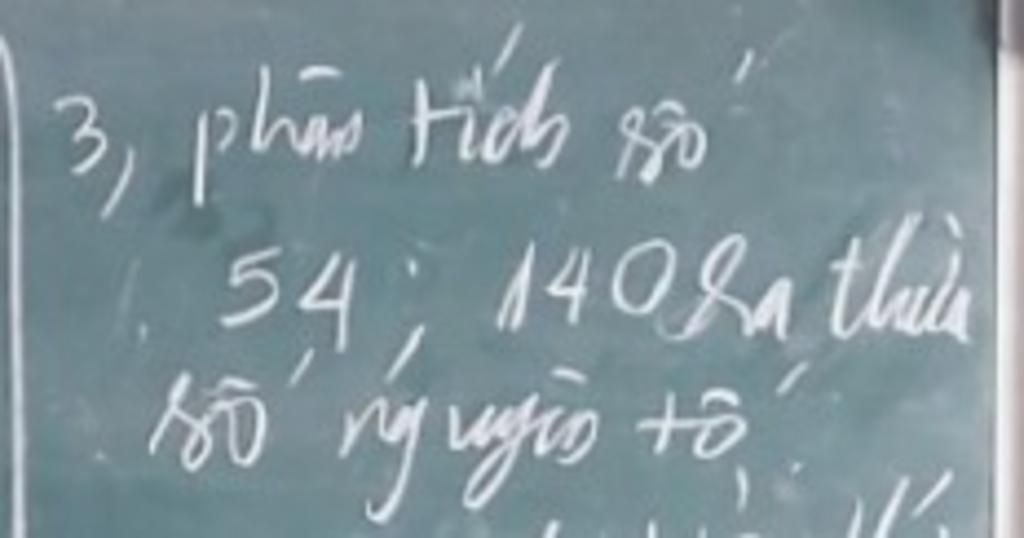 3, phân tích số
54; 140 ra thừa
số nguyên tố